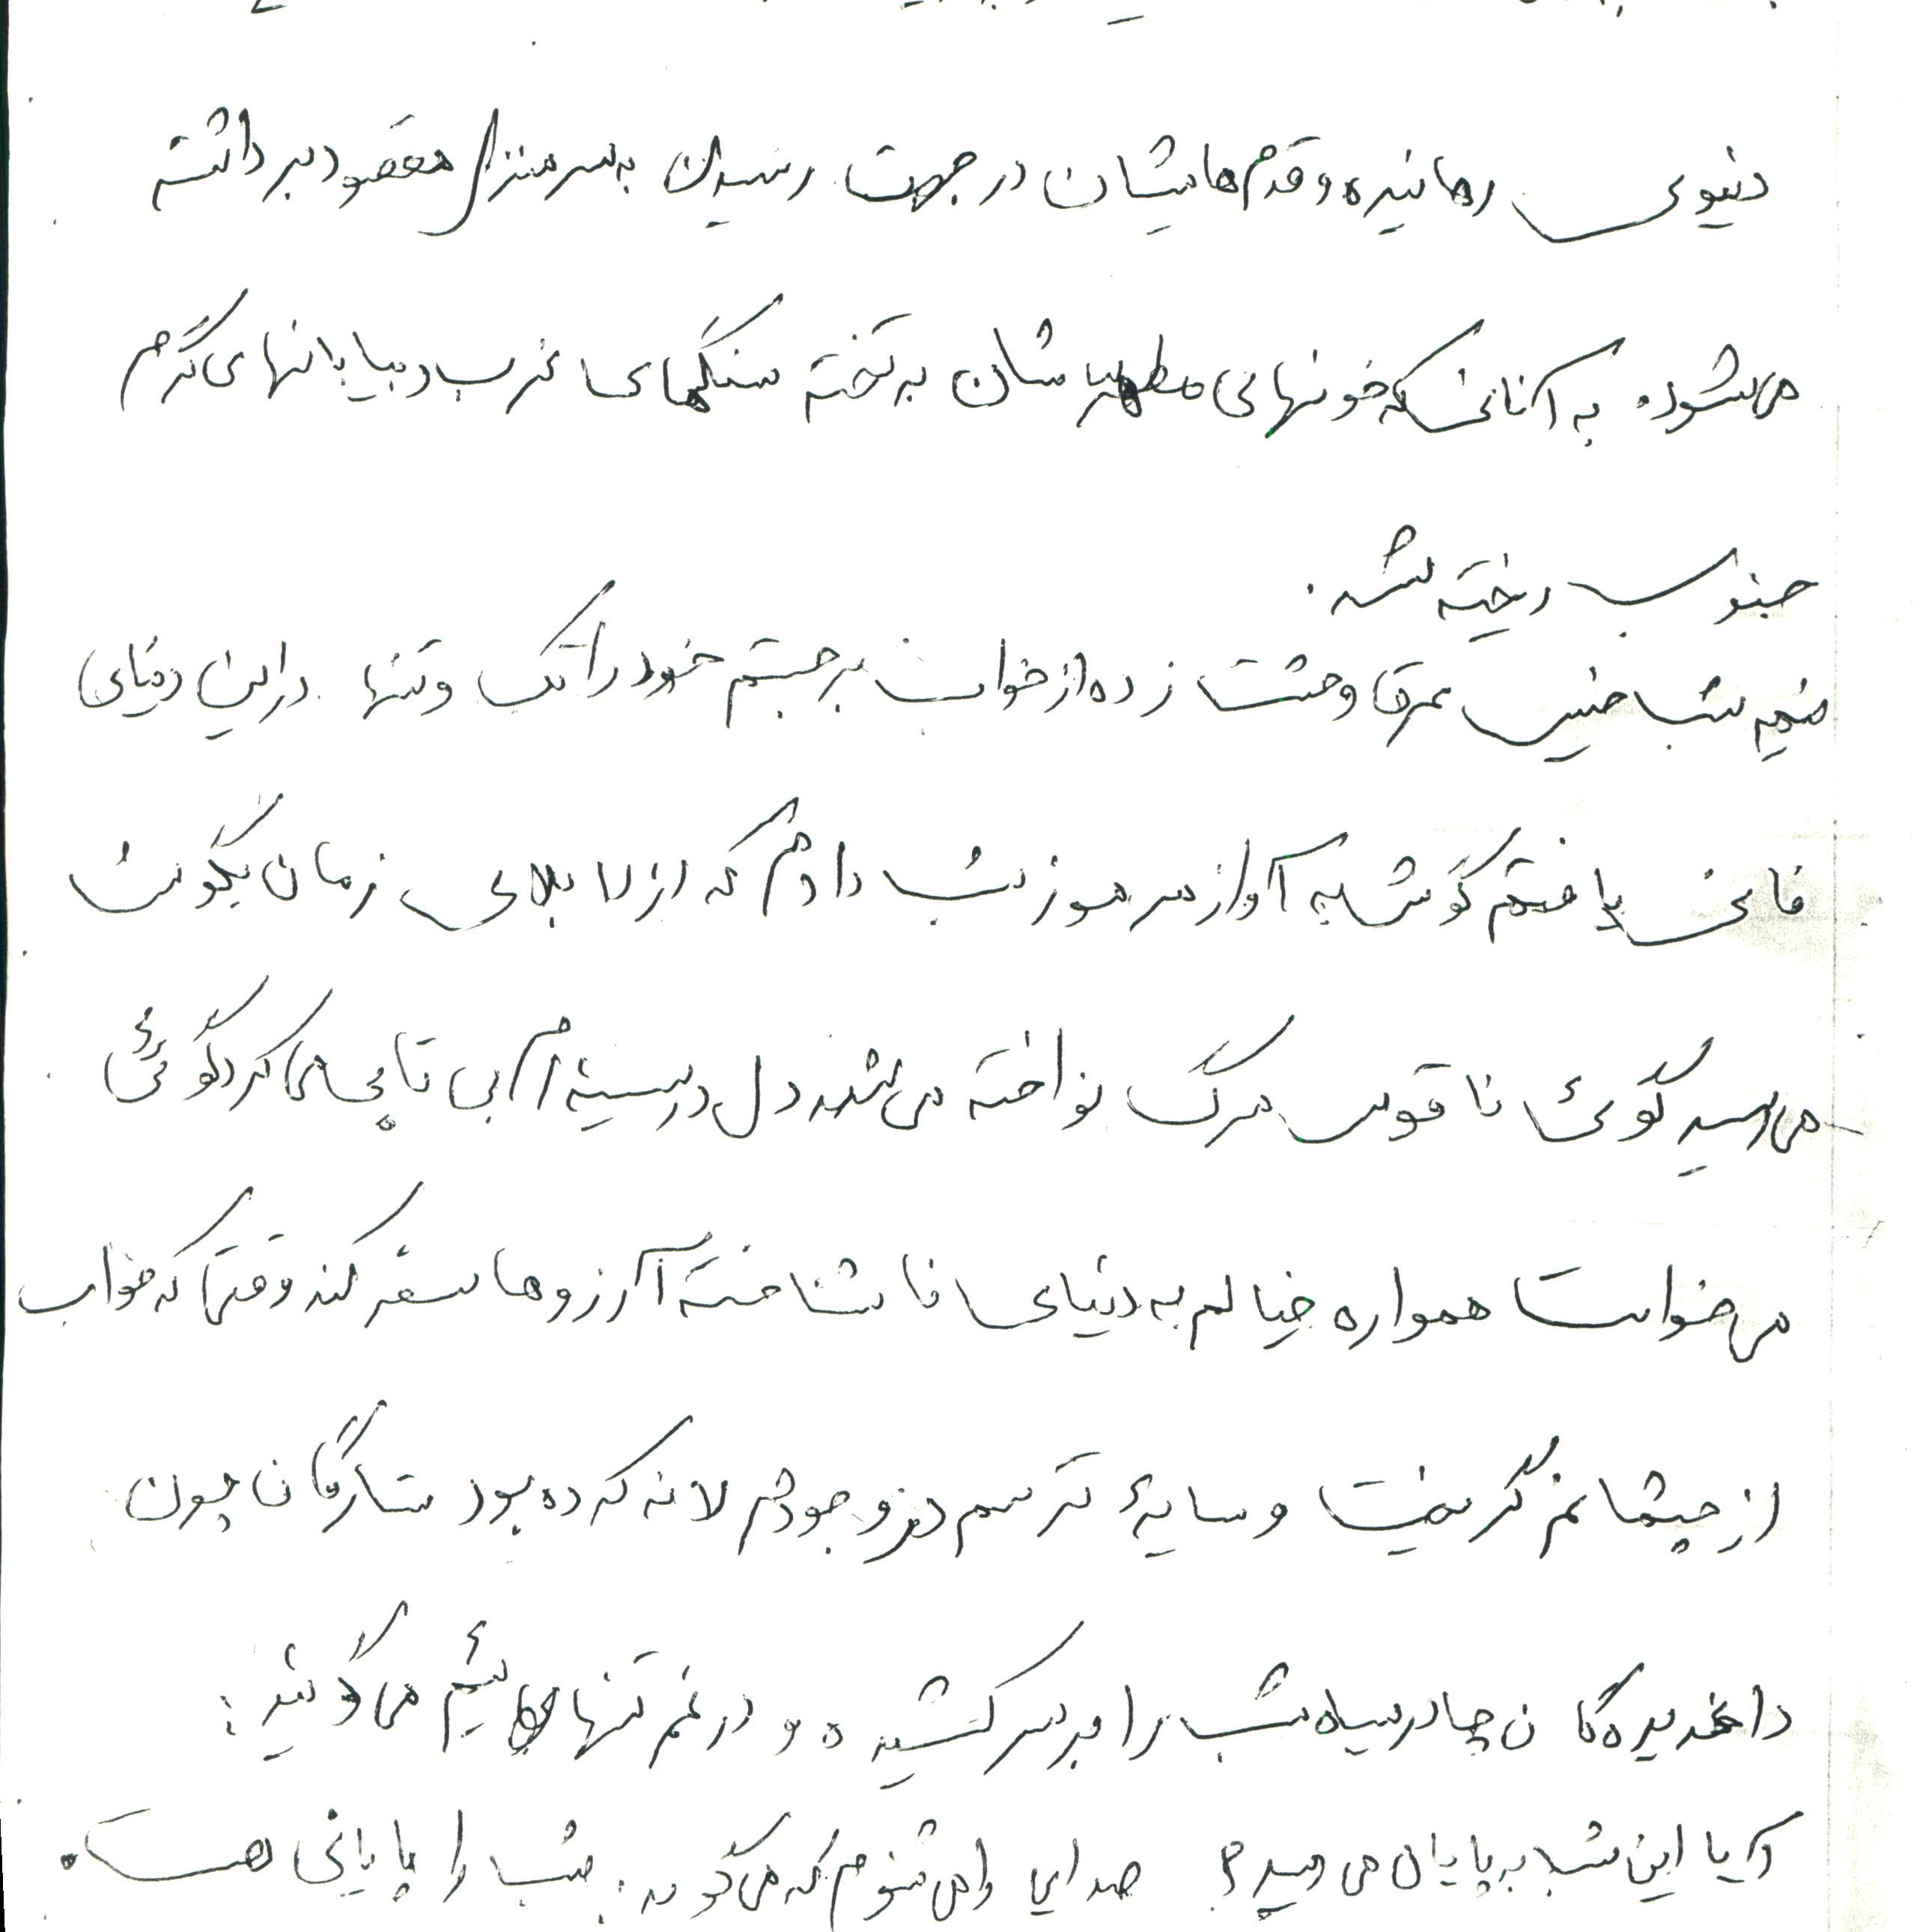 دنیوی رهانیده و قدم هایشان در جهت رسیدن به سر منزل مقصود برداشته
می شود. به آنانی که خونهای مطهرشان بر تخته سنگهای غرب و بیابانهای گرم
جنوب ریخته شد.
نیمه شب خیس عرق وحشت زده از خواب برجستم خود را تک و تنها در این دنیای
فانی یافتم گوش به آواز مرموز شب دادم که از لابلای زمان بگوش
می رسید گوئی ناقوس مرگ نواخته می شد دل در سینه ام بی تابی می کرد گوئی
می خواست همواره خیالم به دنیای ناشناخته آرزوها سفر کند وقتی که خواب
از چشمانم گریخت و سایۀ ترسم در وجودم لانه کرده بود ستارگان چون
داغدیده گان چادر سیاه شب را بر سر کشیده و در غم تنهائیم می گویند:
آیا این شب به پایان می رسد؟ صدایی را می شنوم که می گوید. شب را پایانی هست.